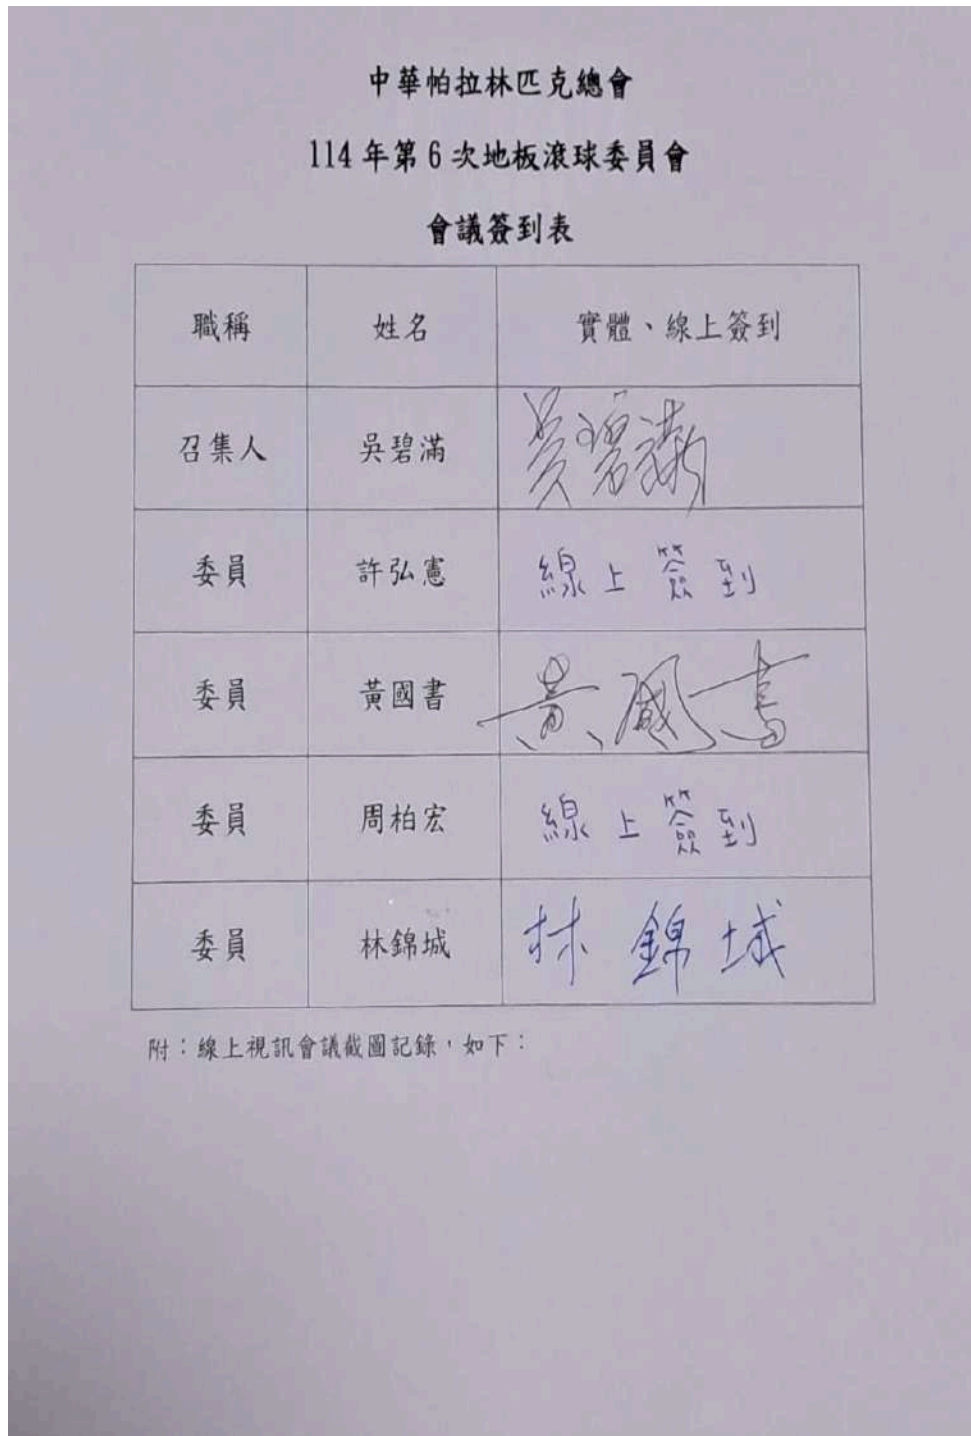 中華帕拉林匹克總會
114年第6次地板滾球委員會
會議簽到表
職稱 姓名 實體、線上簽到
召集人 吳碧滿 吳碧滿
委員 許弘憲 線上簽到
委員 黃國書 黃國書
委員 周柏宏 線上簽到
委員 林錦城 林錦城
附：線上視訊會議截圖記錄，如下：